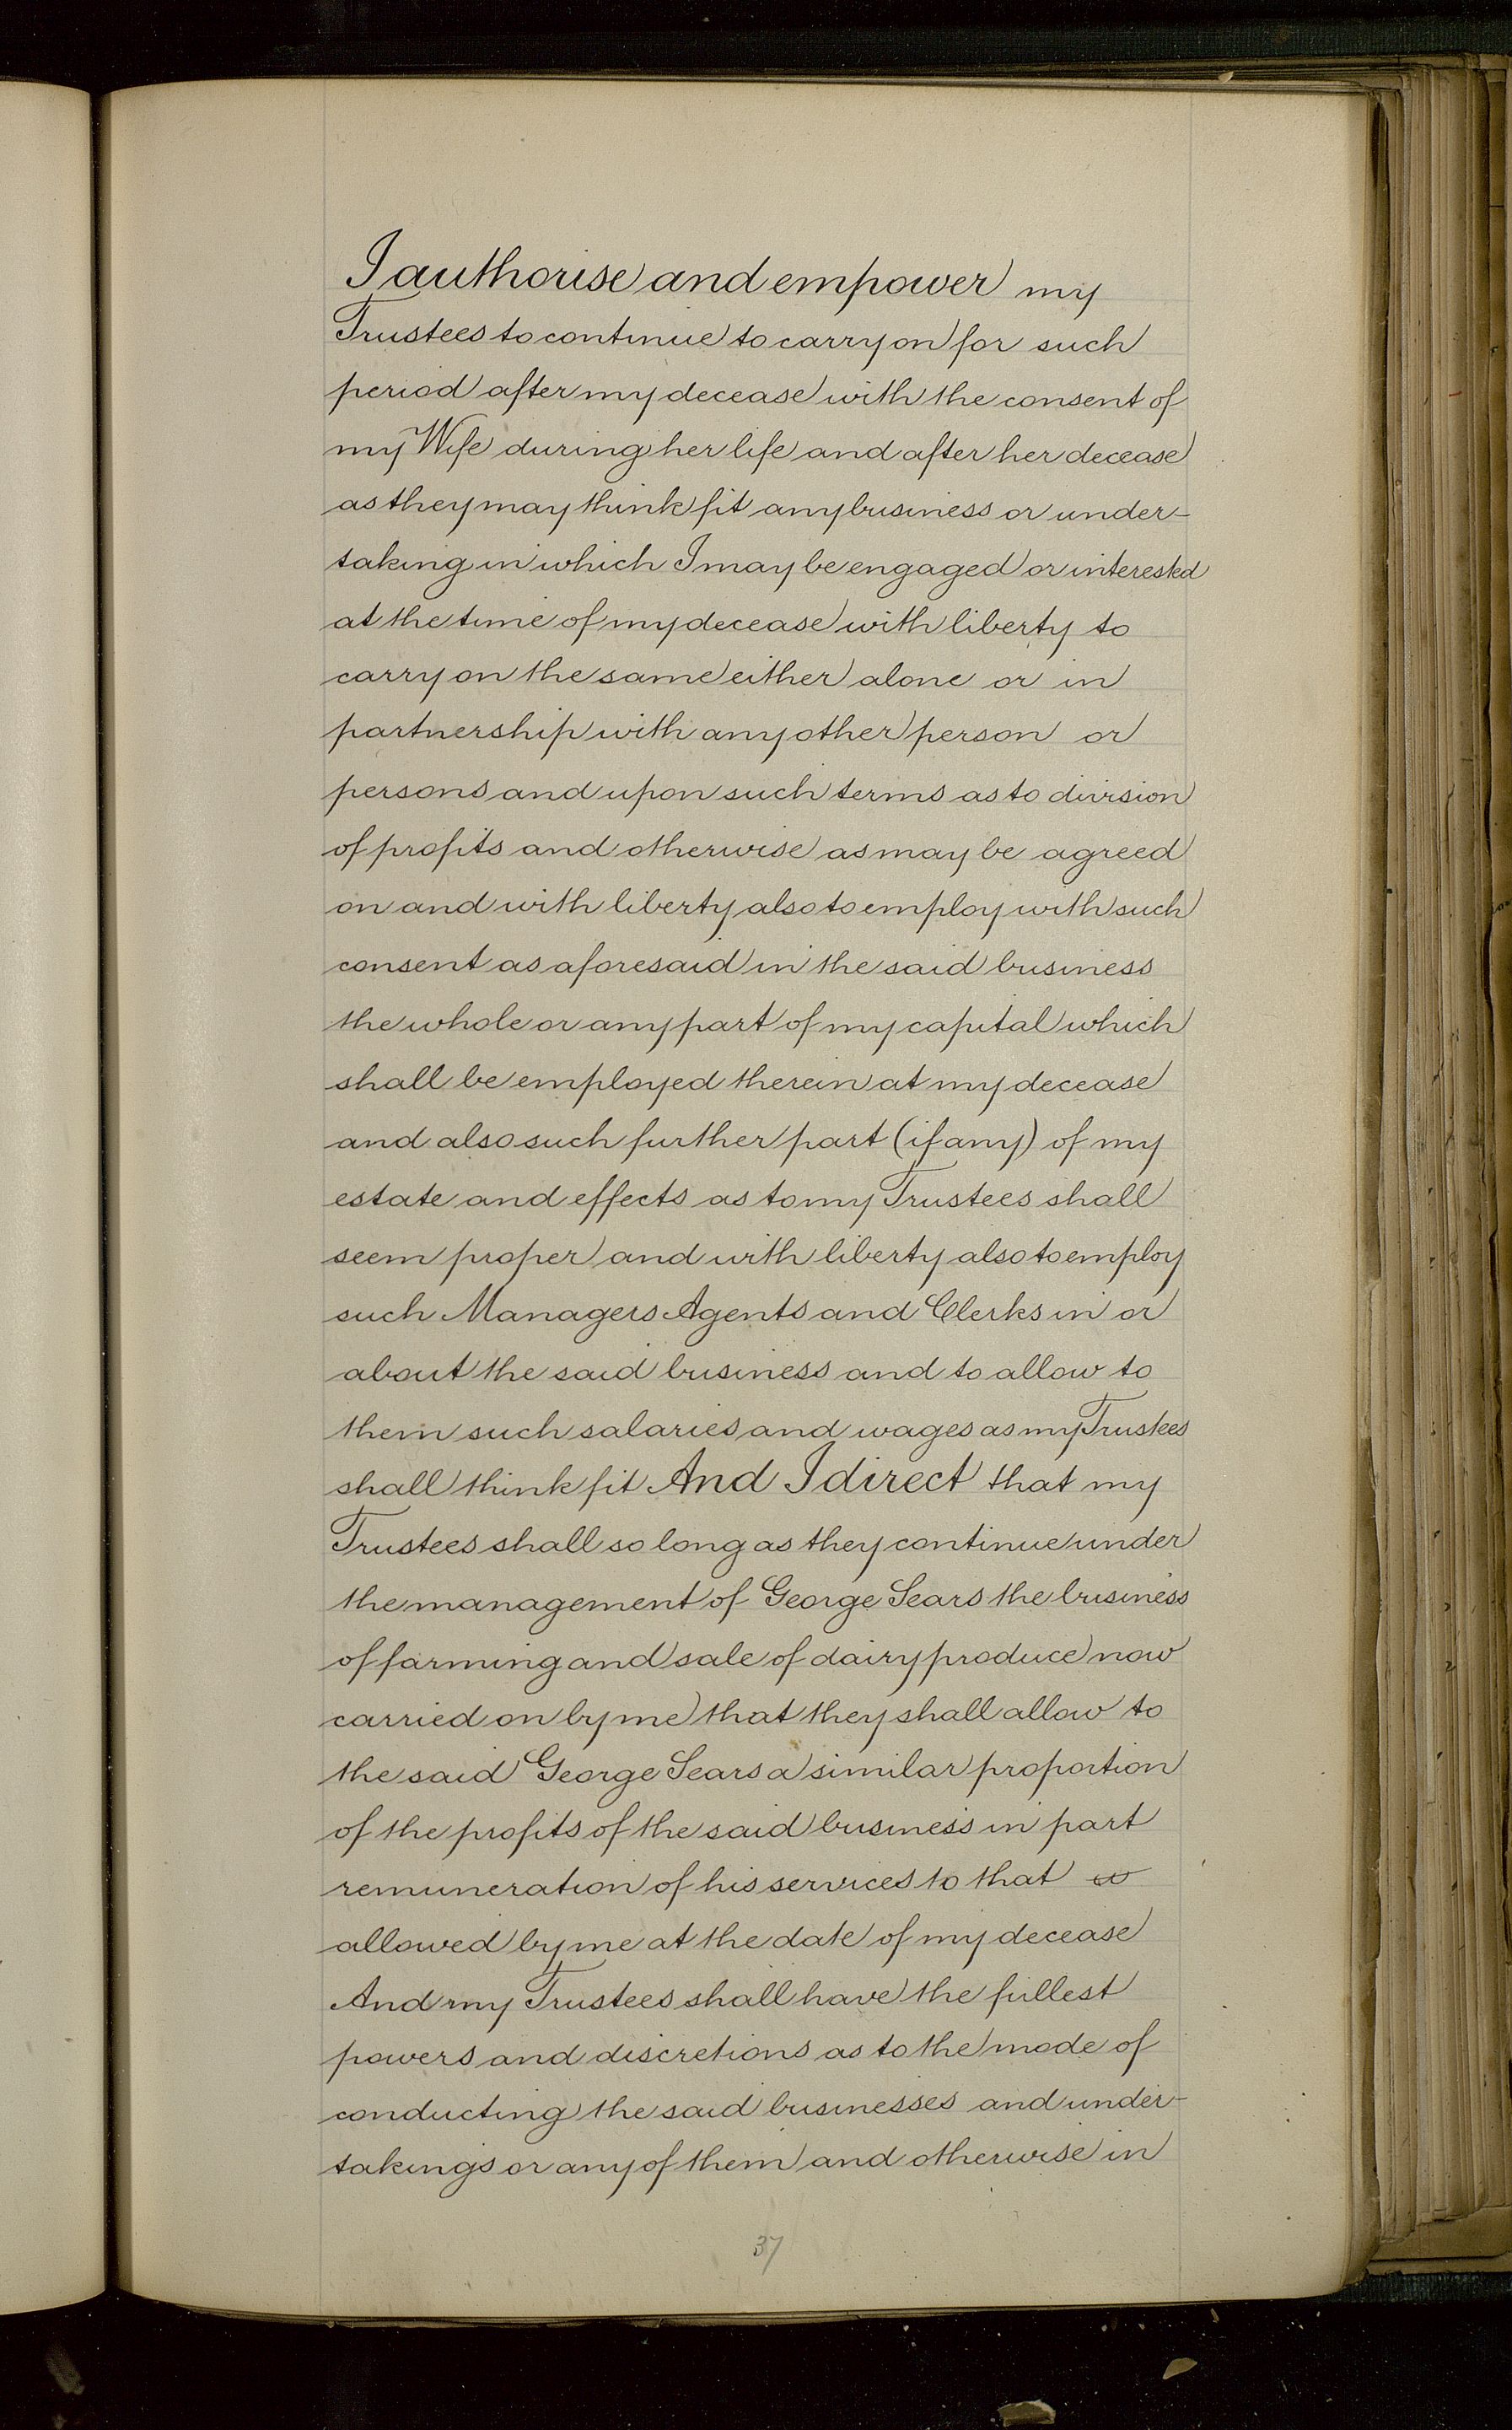 I authorise and empower my
Trustees to continue to carry on for such
period after my decease with the consent of
my Wife during her life and after her decease
as they may think fit any business or under-
taking in which I may be engaged or interested
at the time of my decease with liberty to
carry on the same either alone or in
partnership with any other person or
persons and upon such terms as to division
of profits and otherwise as may be agreed
on and with liberty also to employ with such
consent as aforesaid in the said business
the whole or any part of my capital which
shall be employed therein at my decease
and also such further part (if any) of my
estate and effects as to my Trustees shall
seem proper and with liberty also to employ
such Managers Agents and Clerks in or
about the said business and to allow to
them such salaries and wages as my Trustees
shall think fit And I direct that my
Trustees shall so long as they continue under
the management of George Sears the business
of farming and sale of dairy produce now
carried on by me that they shall allow to
the said George Sears a similar proportion
of the profits of the said business in part
remuneration of his services to that
allowed by me at the date of my decease
And my Trustees shall have the fullest
powers and discretions as to the mode of
conducting the said businesses and under-
takings or any of them and otherwise in
37